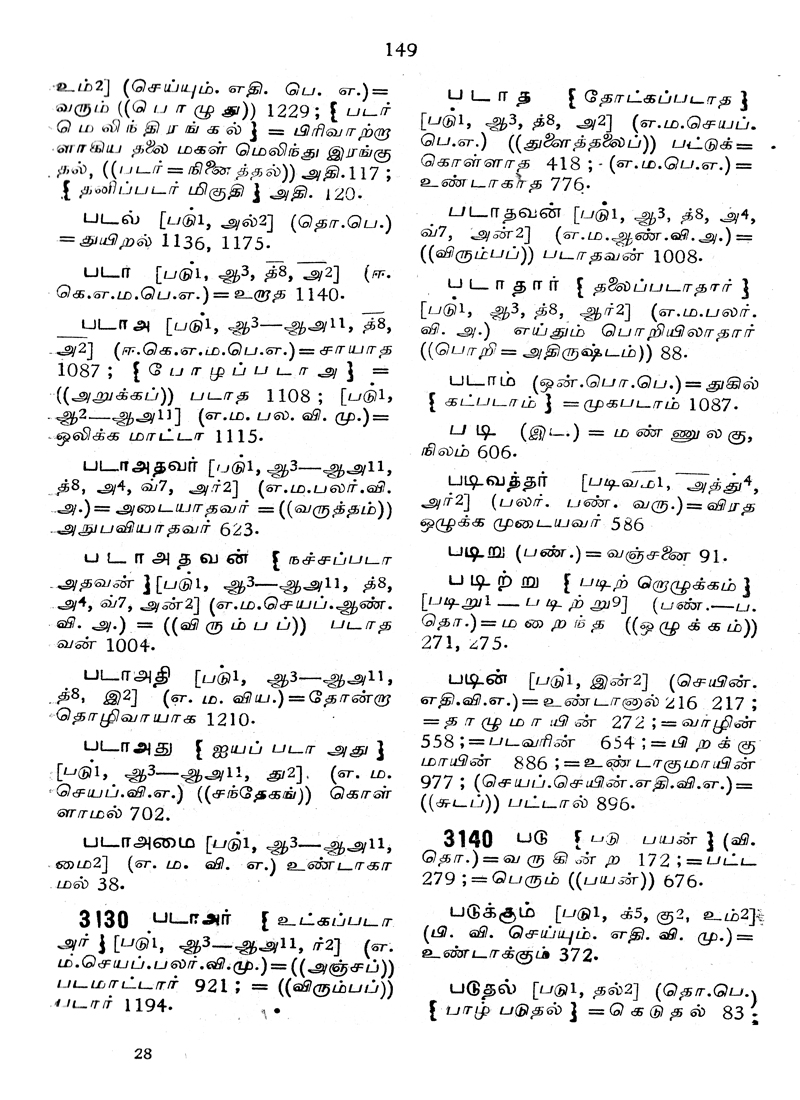 149
உம்2] (செய்யும். எதி. பெ. எ.)=
வரும் ((பொழுது)) 1229; { படர்
மெலிந்திரங்கல் } = பிரிவாற்று
ளாகிய தலை மகள் மெலிந்து இரங்கு
தல், ((படர்=நினைத்தல்)) அதி.117;
{ தனிப்படர் மிகுதி } அதி. 120.
படல் [படு1, அல்2] (தொ.பெ.)
=துயிறல் 1136, 1175.
படா [படு1, ஆ3, த்8, அ2] (ஈ.
கெ.எ.ம.பெ.எ.)=உறாத 1140.
படாஅ [படு1, ஆ3—ஆஅ11, த்8,
அ2] (ஈ.கெ.எ.ம.பெ.எ.)=சாயாத
1087; { போழப்படாஅ } =
((அறுக்கப்)) படாத 1108; [படு1,
ஆ2—ஆஅ11] (எ.ம. பல. வி. மு.)=
ஒலிக்க மாட்டா 1115.
படாஅதவர் [படு1, ஆ3—ஆஅ11,
த்8, அ4, வ்7, அர்2] (எ.ம.பலர்.வி.
அ.)=அடையாதவர் =((வருத்தம்))
அநுபவியாதவர் 623.
படாஅதவன் { நச்சப்படா
அதவன் }[படு1, ஆ3—ஆஅ11, த்8,
அ4, வ்7, அன்2] (எ.ம.செயப்.ஆண்.
வி. அ.) = ((விரும்பப்)) படாத
வன் 1004.
படாஅதி [படு1, ஆ3—ஆஅ11,
த்8, இ2] (எ. ம. விய.)=தோன்றா
தொழிவாயாக 1210.
படாஅது { ஐயப் படா அது }
[படு1, ஆ3—ஆஅ11, து2]. (எ. ம.
செயப்.வி.எ.) ((சந்தேகங்)) கொள்
ளாமல் 702.
படாஅமை [படு1, ஆ3—ஆஅ11,
மை2] (எ. ம. வி. எ.) உண்டாகா
மல் 38.
3130 படாஅர் { உட்கப்படா
அர் } [படு1, ஆ3—ஆஅ11, ர்2] (எ.
ம்.செயப்.பலர்.வி.மு.)=((அஞ்சப்))
படமாட்டார் 921; = ((விரும்பப்))
படார் 1194.
28
படாத { தோட்கப்படாத }
[படு1, ஆ3, த்8, அ2] (எ.ம.செயப்.
பெ.எ.) ((துளைத்தலைப்)) பட்டுக்=
கொள்ளாத 418; (எ.ம.பெ.எ.)=
உண்டாகாத 776.
படாதவன் [படு1, ஆ3, த்8, அ4,
வ்7, அன்2] (எ.ம.ஆண்.வி.அ.)=
((விரும்பப்)) படாதவன் 1008.
படாதார் { தலைப்படாதார் }
[படு1, ஆ3, த்8, ஆர்2] (எ.ம.பலர்.
வி. அ.) எய்தும் பொறியிலாதார்
((பொறி=அதிருஷ்டம்)) 88.
படாம் (ஒன்.பொ.பெ.)=துகில்
{ கட்படாம் } =முகபடாம் 1087.
படி (இட.) = மண்ணுலகு,
நிலம் 606.
படிவத்தர் [படிவம1, அத்து4,
அர்2] (பலர். பண். வரு.)=விரத
ஒழுக்க முடையவர் 586
படிறு (பண்.)=வஞ்சனை 91.
படிற்று { படிற் றொழுக்கம் }
[படிறு1 — படிற்று9] (பண்.—ப.
தொ.)=மறைந்த ((ஒழுக்கம்))
271, 275.
படின் [படு1, இன்2] (செயின்.
எதி.வி.எ.)=உண்டானால் 216 217;
=தாழுமாயின் 272;=வாழின்
558;=படவரின் 654;=பிறக்கு
மாயின் 886;=உண்டாகுமாயின்
977; (செயப்.செயின்.எதி.வி.எ.)=
((சுடப்)) பட்டால் 896.
3140 படு { படு பயன் } (வி.
தொ.)=வருகின்ற 172;=பட்ட
279;=பெரும் ((பயன்)) 676.
படுக்கும் [படு1, க்5, கு2, உம்2]
(பி. வி. செய்யும். எதி. வி. மு.)=
உண்டாக்கும் 372.
படுதல் [படு1, தல்2] (தொ.பெ.)
{ பாழ் படுதல் } =கெடுதல் 83;